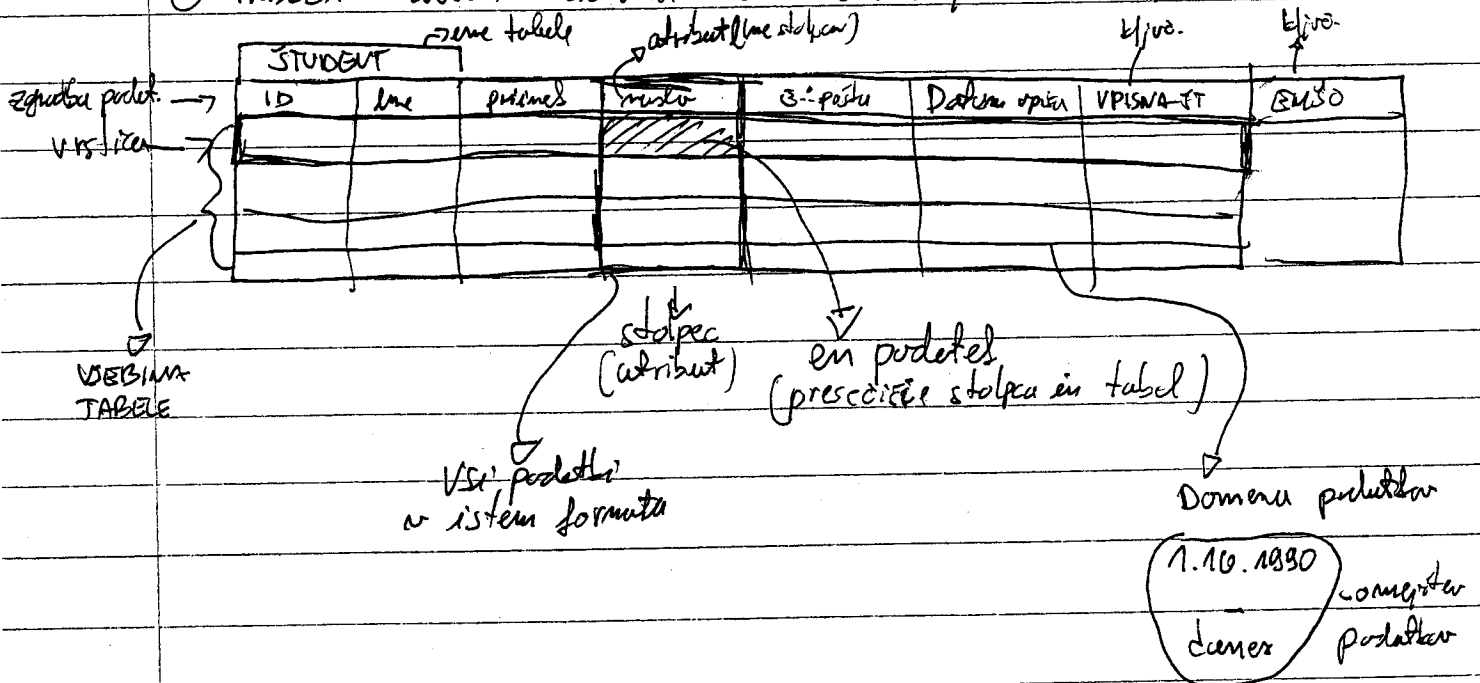 TABELA
ime tabele
atribut (ime stolpca)
ključ.
ključ.
ŠTUDENT
zgradba podat.
ID
Ime
priimek
naslov
E-pošta
Datum vpisa
VPISNA-ŠT
EMŠO
vrstica
VSEBINA
TABELE
stolpec
(atribut)
en podatek
(presečišče stolpca in tabel)
Vsi podatki
v istem formatu
Domena podatkov
1.10.1990
-
danes
omejitev
podatkov